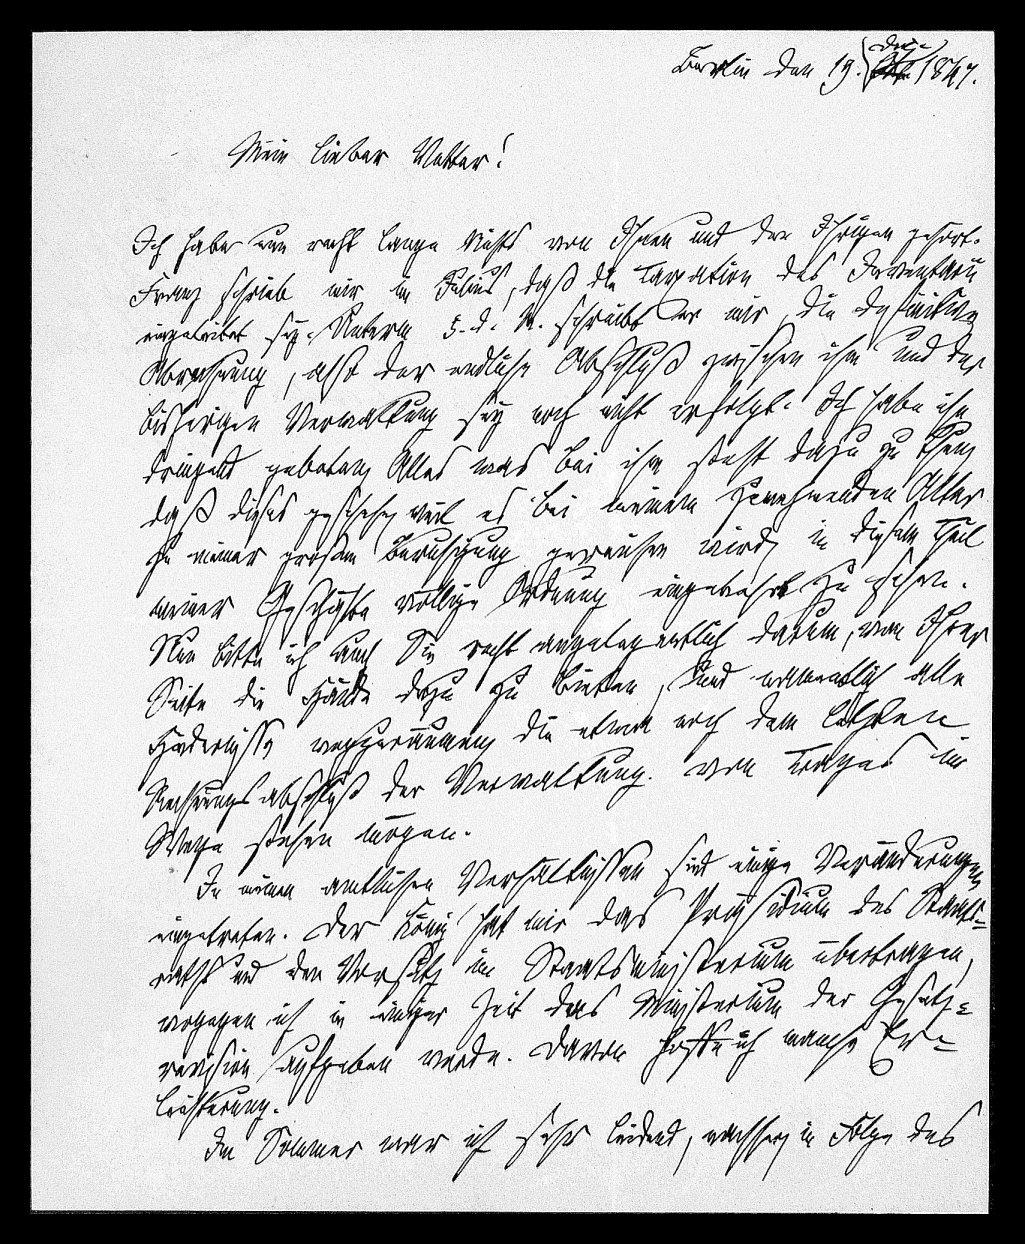 Berlin den 19. Dec. 1847.
Mein lieber Vetter!
Ich habe nun recht lange Nichts von Ihnen und den Ihrigen gehört.
Franz schrieb mir im Julius, daß die Taxation des Inventars
eingeleitet sey. Unterm 5. d. M. schreibt er mir, die definitive
Abrechnung, also der endliche Abschluß zwischen ihm und der
bisherigen Verwaltung sey noch nicht erfolgt. Ich habe ihn
dringend gebeten Alles was bei ihm steht dazu zu thun,
daß dieses geschehe, weil es bei meinem zunehmenden Alter
zu meiner großen Beruhigung gereichen wird, in diesem Theil
meiner Geschäfte völlige Ordnung eingekehrt zu sehen.
Nun bitte ich auch Sie recht angelegentlich darum, von Ihrer
Seite die Hände dazu zu bieten, und namentlich alle
Hindernisse wegzuräumen, die etwa noch dem letzten
Rechnungsabschluß der Verwaltung von Trages im
Wege stehen mögen.
In meinen amtlichen Verhältnissen sind einige Veränderungen
eingetreten. Der König hat mir das Präsidium des Staats-
raths und den Vorsitz im Staatsministerium übertragen,
wogegen ich in einiger Zeit das Ministerium der Gesetz-
revision aufgeben werde. Davon hoffe ich manche Er-
leichterung.
Im Sommer war ich sehr leidend, nachher, in Folge des